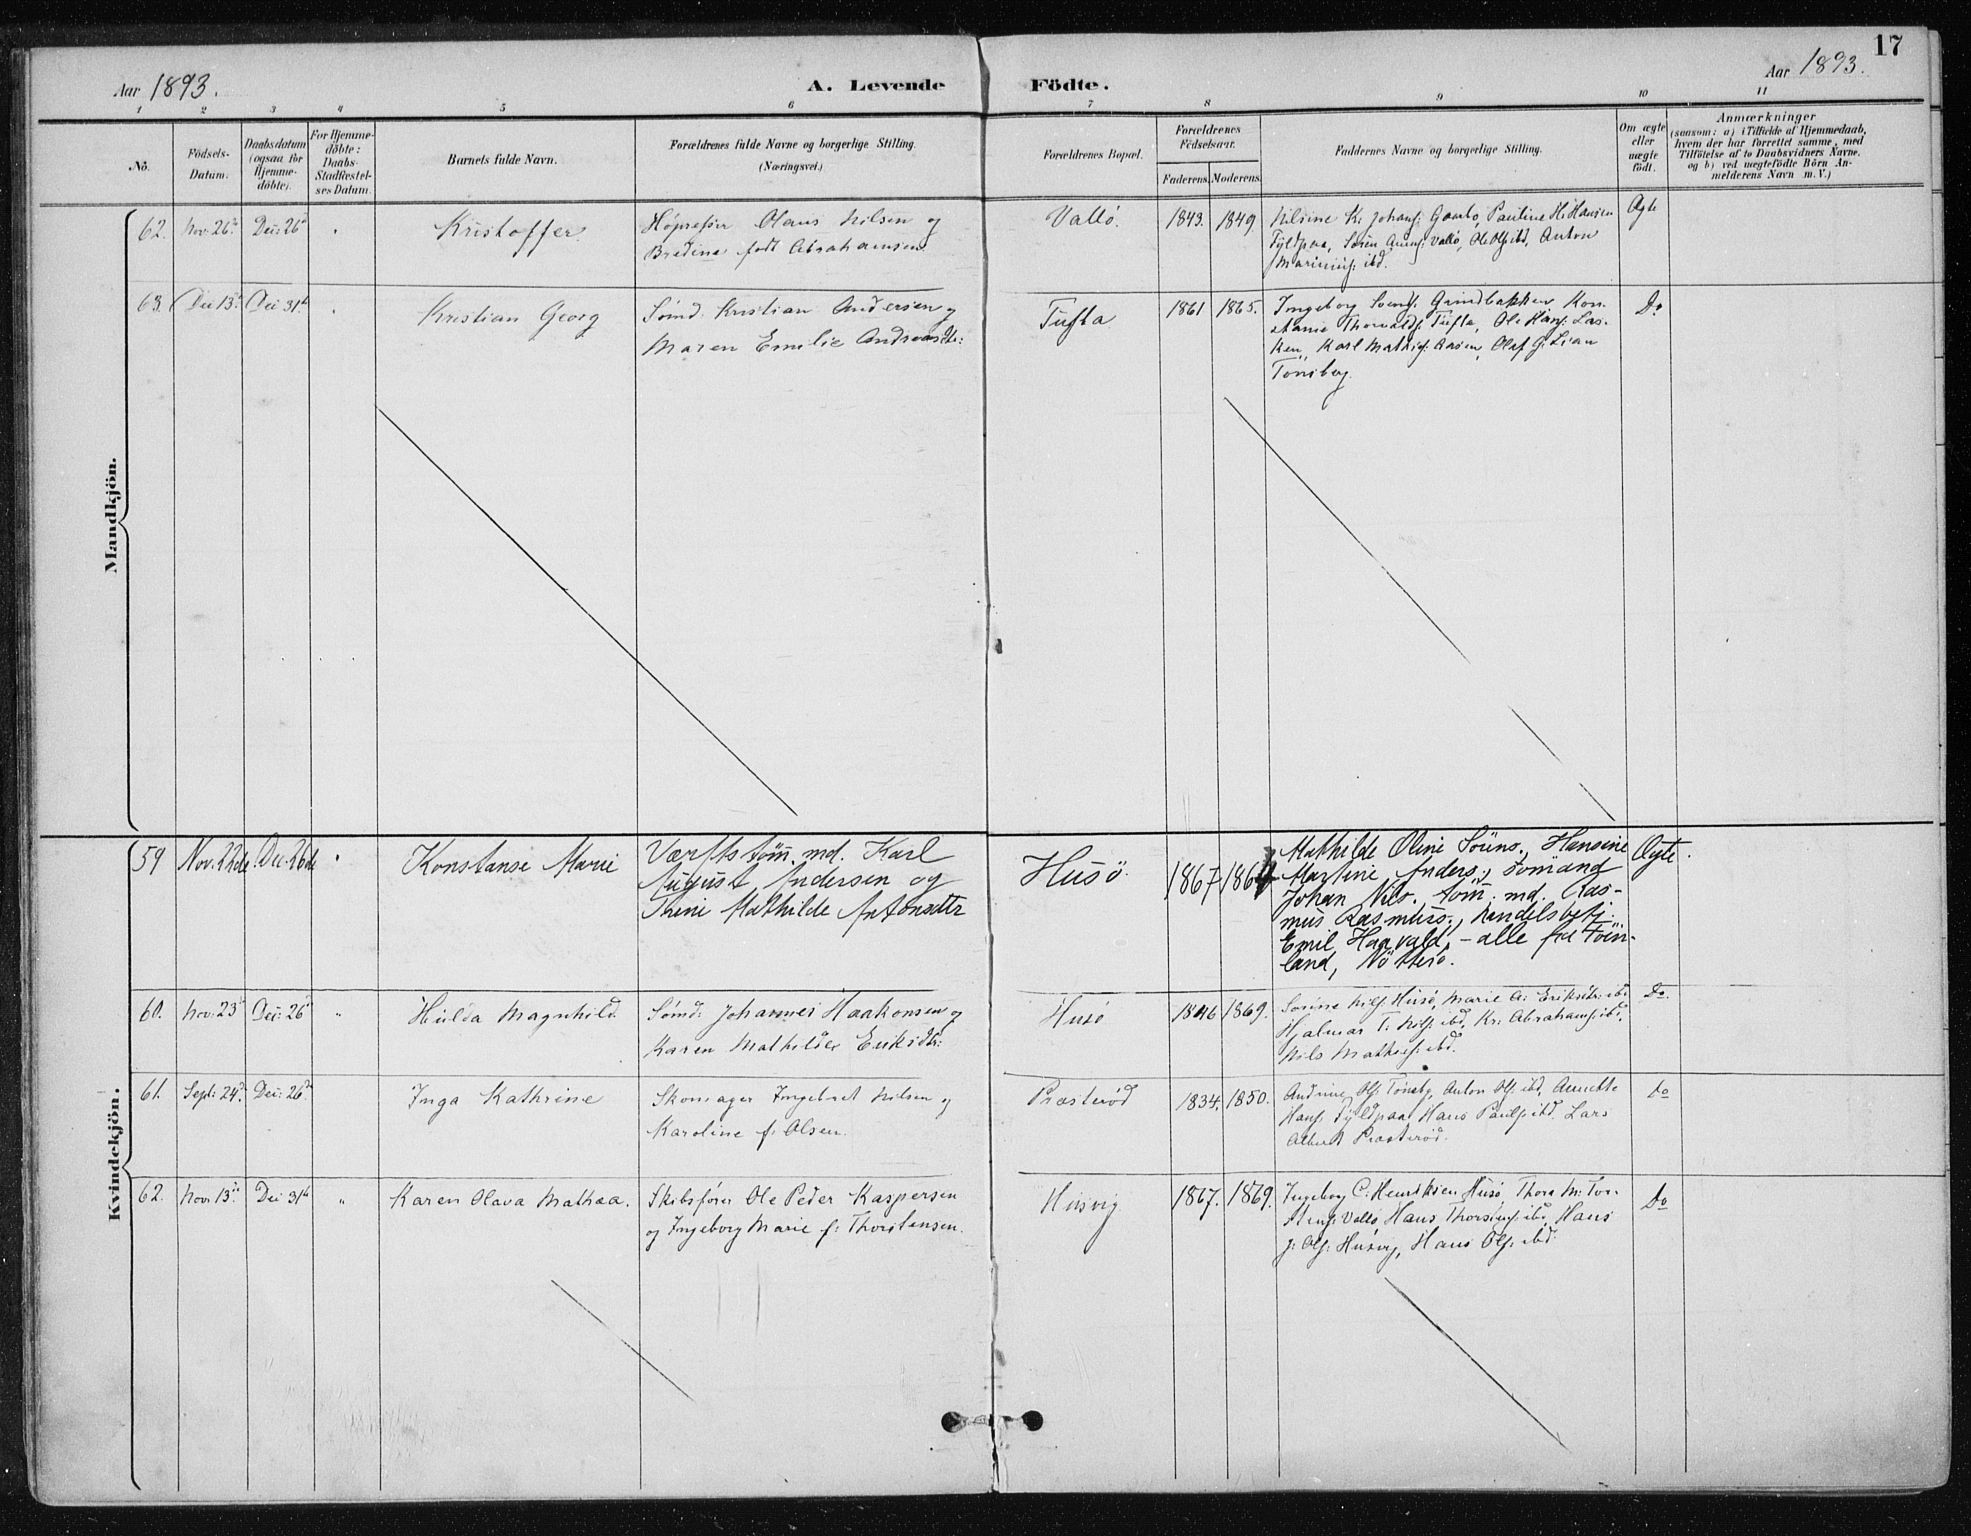 17
Aar 1893.
A. Levende Födte.
Aar 1893.
1 2 3 4 5 6 7 8 9 10 11
No.
Födsels-Datum.
Daabsdatum (ogsaa for Hjemme-döbte).
For Hjemme-döbte: Daabs-Stadfæstel-ses Datum.
Barnets fulde Navn.
Forældrenes fulde Navne og borgerlige Stilling.
(Næringsvei.)
Forældrenes Bopæl.
Forældrenes Födselsaar.
Faderens. Moderens.
Faddernes Navne og borgerlige Stilling.
Om ægte eller uægte födt.
Anmærkninger
(saasom: a) i Tilfælde af Hjemmedaab,
hvem der har forrettet samme, med
Tilföielse af to Daabsvidners Navne.
og b) ved uægtefödte Börn An-
melderens Navn m. V.)
Mandkjön.
62. Nov: 26de Dec: 26de Kristoffer Olaus Nilsen og
Bredine født Abrahamsen
Vallö. 1843. 1849 Nilsine K. Johans: Pauline H. Hansen
Vallö, Anton
ibd.
Ægte
63. Dec 13de Dec 31te Kristian Georg
Sömd. Kristian Andersen og
Maren Emilie Andreasdtr:
Tufta 1861 1865. Ingeborg Svends: Grindbakken Kon-
stanse Thorvalds: Tufta, Ole Hans: Las-
ken, Karl Mathis: Aasen, Olaf G. Lian
Tönsberg.
Do
Kvindekjön.
59 Nov. 22de Dec. 26de Konstanse Marie
Værftstöm.md. Karl
August Andersen og
Thine Mathilde Antonsdtr
Husö. 1867 1864
Mathilde Oline Sörens., Hansine
Martine Anders., sömand
Johan Nils., töm.md. Ras-
mus Rasmuss., handelsbetj.
Emil Haavald, - alle fra Töin-
land, Nötterö.
Ægte.
60. Nov: 23de Dec: 26de " Hulda Magnhild
Sömd: Johannes Haakonsen og
Karen Mathilde Eriksdtr:
Husö 1869. Nils: Husö, Marie A. Eriksdtr: ibd,
Hjalmar T. Nils: ibd, Kr. Abrahams: ibd,
Nils Mathis: ibd.
Do.
61. Sept: 24de Dec: 26de Inga Kathrine
Skomager Ingebret Nilsen og
Karoline f: Olsen.
Præsteröd 1834. 1850. Andrine Ols: Tönsbg, Anton Ols: ibd, Annette
Hans: Fyldpaa, Hans Pauls: ibd. Lars
Albert Præsterød.
Do
62. Nov: 13de Dec 31te " Karen Olava Mathea.
Skibsfører Ole Peder Kaspersen
og Ingeborg Marie f: Thorstensen.
Husvig 1867. 1869. Ingeborg C. Henriksen Husö, Thora M. Tor-
stens: Vallö, Hans Thorstens: ibd, Hans
J: Ols: Husvig, Hans Ols: ibd.
Do